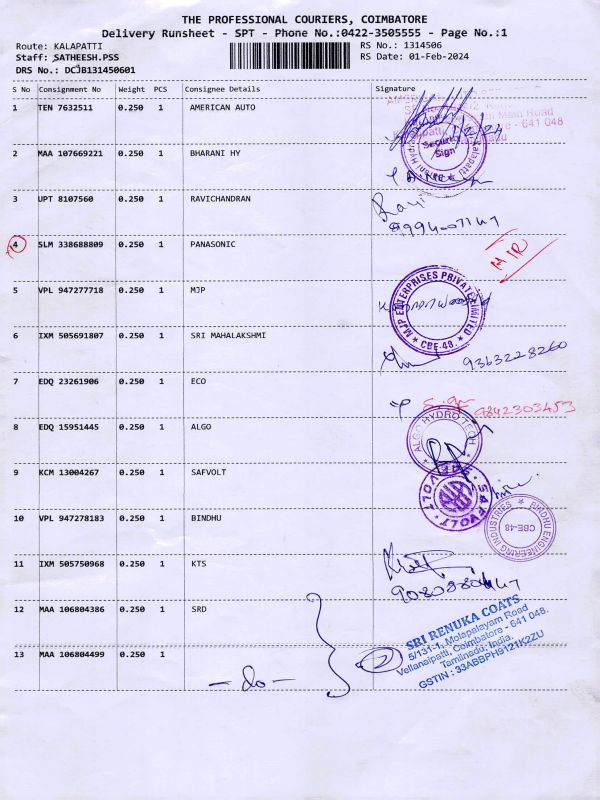 THE PROFESSIONAL COURIERS, COIMBATORE
Delivery Runsheet - SPT - Phone No.:0422-3505555 - Page No.:1
Route: KALAPATTI
RS No.: 1314506
Staff: SATHEESH.PSS
RS Date: 01-Feb-2024
DRS No.: DCJB131450601
S No Consignment No Weight PCS Consignee Details Signature
1 TEN 7632511 0.250 1 AMERICAN AUTO
Main Road
- 641 048
Security
Sign
2 MAA 107669221 0.250 1 BHARANI HY
3 UPT 8107560 0.250 1 RAVICHANDRAN
Ravi
4 SLM 338688809 0.250 1 PANASONIC
MIR
5 VPL 947277718 0.250 1 MJP
MJP ENTERPRISES PRIVATE LIMITED
* CBE-48. *
6 IXM 505691807 0.250 1 SRI MAHALAKSHMI
9363228260
7 EDQ 23261906 0.250 1 ECO
9842303453
8 EDQ 15951445 0.250 1 ALGO
ALGO HYDRO TECH
9 KCM 13004267 0.250 1 SAFVOLT
SAFVOLT
10 VPL 947278183 0.250 1 BINDHU
BINDHU ENGINEERING INDUSTRIES
CBE-48
11 IXM 505750968 0.250 1 KTS
12 MAA 106804386 0.250 1 SRD
SRI RENUKA COATS
5/131-1, Molapalayam Road
Vellanaipatti, Coimbatore - 641 048.
Tamilnadu, India.
GSTIN : 33ABBPH9121K2ZU
13 MAA 106804499 0.250 1
- do -